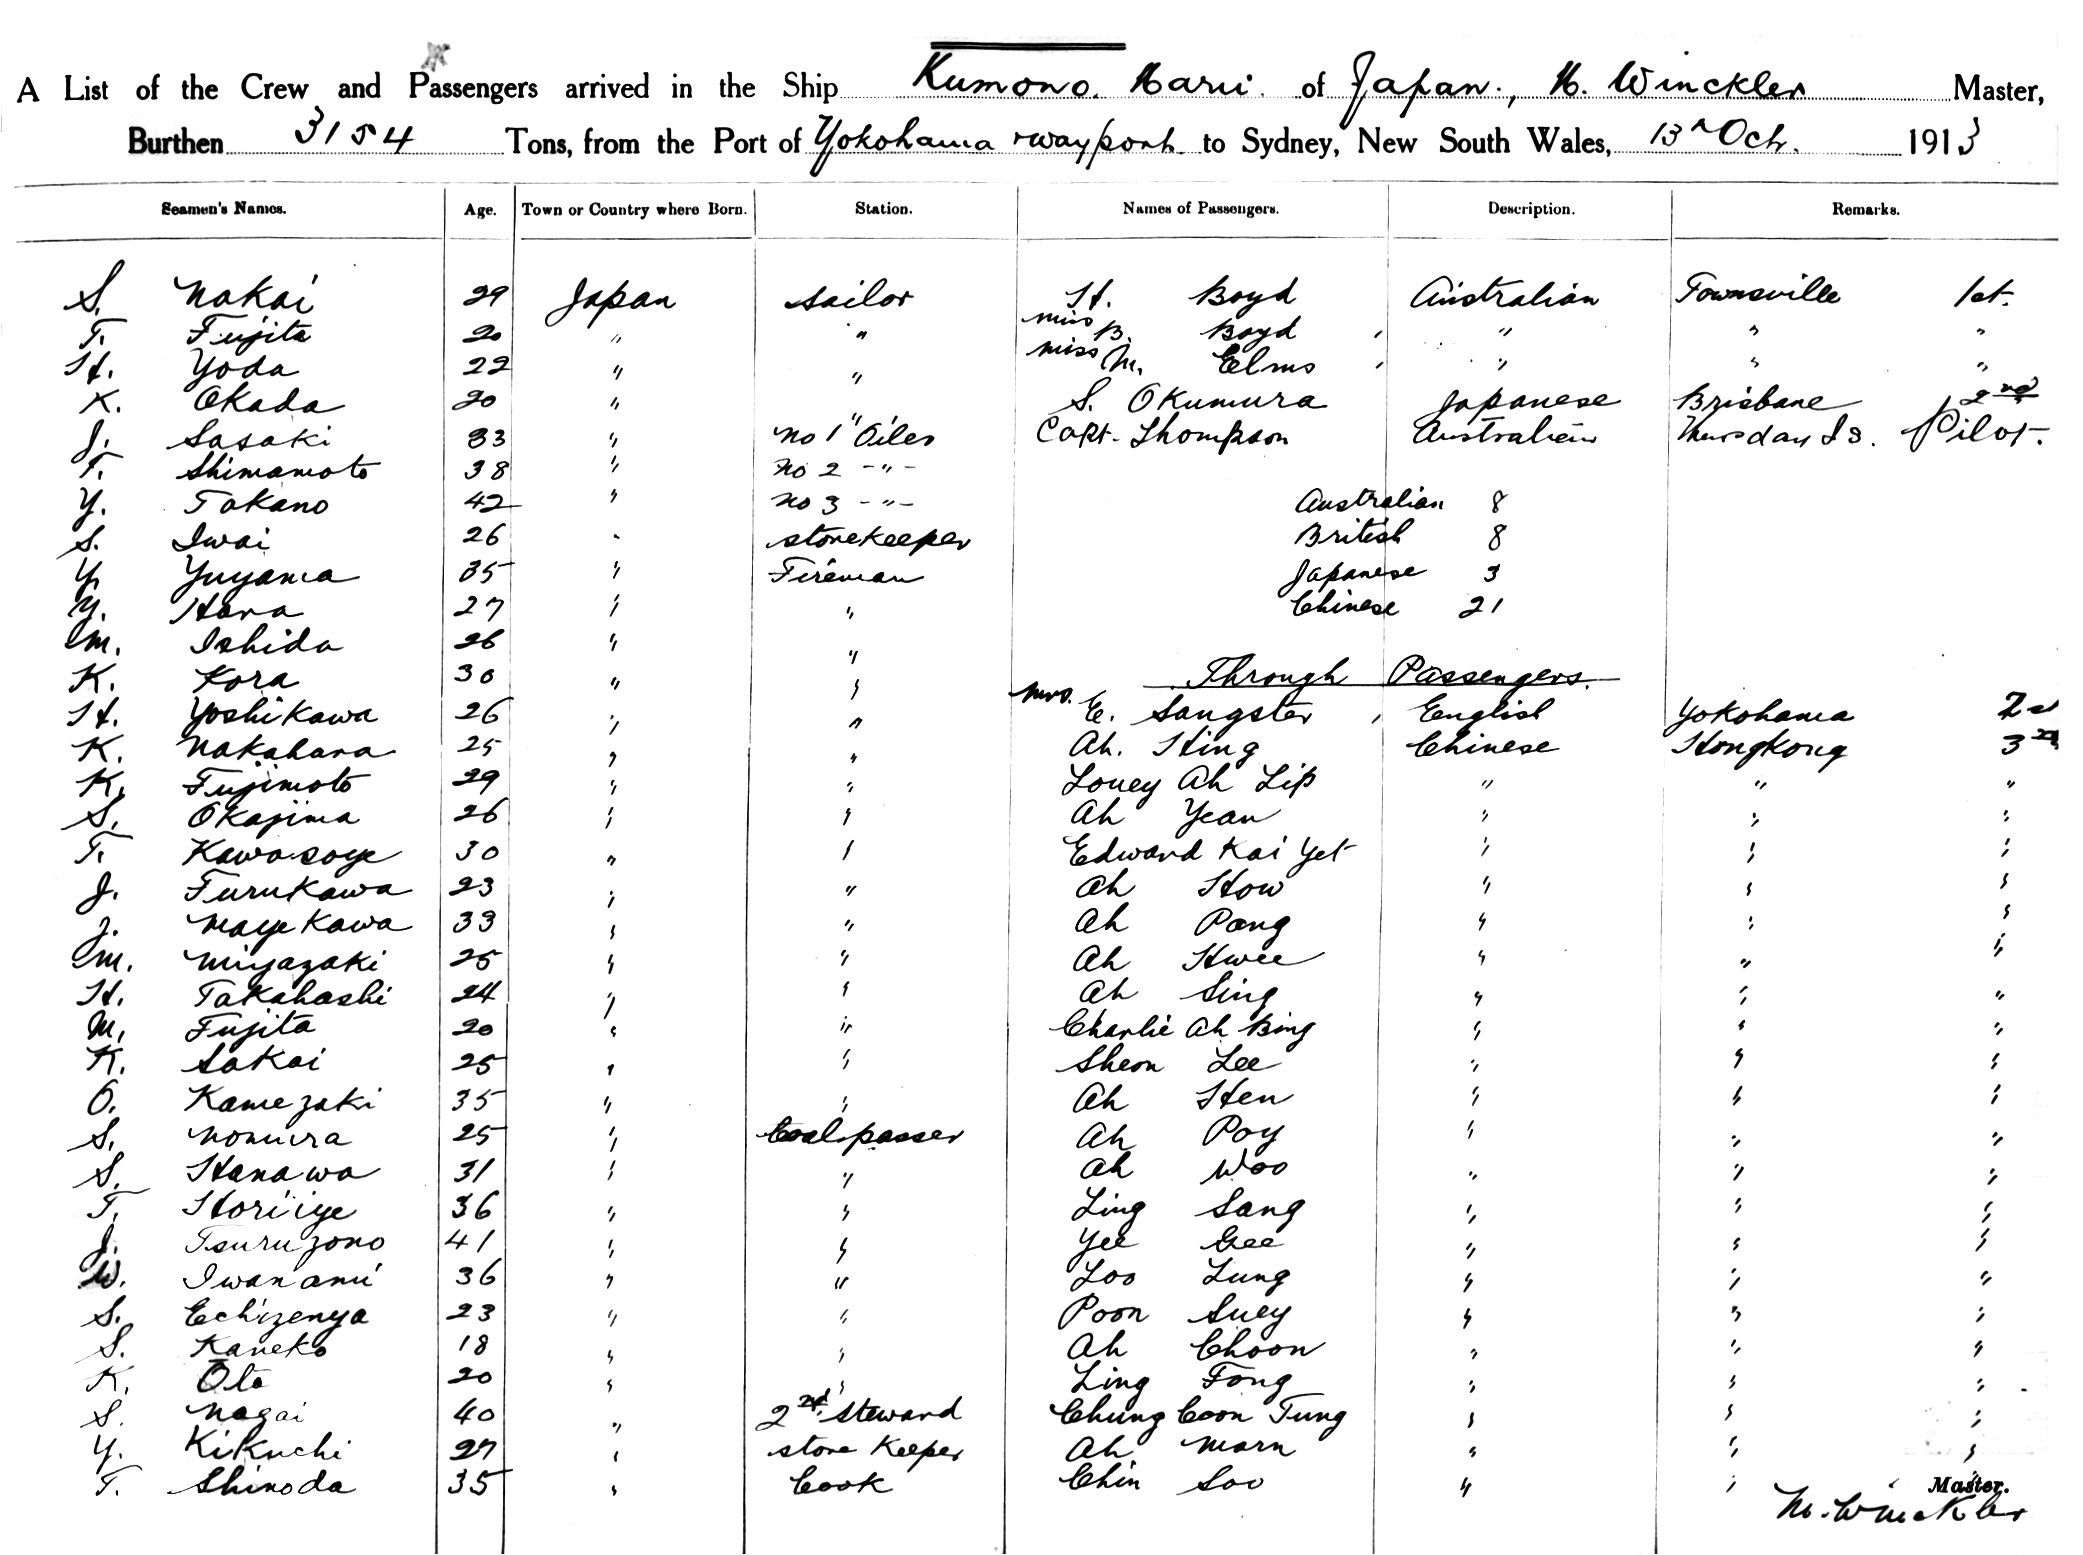 A List of the Crew and Passengers arrived in the Ship Kumono Maru of Japan, M. Winckler Master,
Burthen 3154 Tons, from the Port of Yokohama & way ports to Sydney, New South Wales, 13th Oct. 1913
Seamen's Names. Age. Town or Country where Born. Station. Names of Passengers. Description. Remarks.
S. Nakai 29 Japan sailor H. Boyd Australian Townsville 1st.
T. Fujita 20 " " Miss B. Boyd " " "
H. Yoda 22 " " Miss M. Elms " " "
K. Okada 20 " " S. Okumura Japanese Brisbane 2nd
J. Sasaki 33 " No 1 Oiler Capt. Thompson Australian Thursday Is. Pilot.
T. Shimamoto 38 " No 2 -"-
Y. Takano 42 " No 3 -"- Australian 8
S. Iwai 26 " storekeeper British 8
Y. Yuyama 35 " Fireman Japanese 3
Y. Hara 27 " " Chinese 21
M. Ishida 26 " "
K. Kora 30 " " Through Passengers.
H. Yoshikawa 26 " " Mrs. E. Sangster English Yokohama 2nd
K. Nakahara 25 " " Ah. Hing Chinese Hongkong 3rd
K. Fujimoto 29 " " Louey Ah Lip " " "
S. Okajima 26 " " Ah Yean " " "
T. Kawasoye 30 " " Edward Kai Yet " " "
J. Furukawa 23 " " Ah How " " "
J. Mayekawa 33 " " Ah Pang " " "
M. Miyazaki 25 " " Ah Hwee " " "
H. Takahashi 24 " " Ah Sing " " "
M. Fujita 20 " " Charlie Ah Bing " " "
K. Sakai 25 " " Sheon Lee " " "
O. Kamezaki 35 " " Ah Hen " " "
S. Nomura 25 " Coalpasser Ah Poy " " "
S. Hanawa 31 " " Ah Woo " " "
T. Horiiye 36 " " Ling Sang " " "
J. Tsuruzono 41 " " Yee Gee " " "
W. Iwanami 36 " " Loo Lung " " "
S. Echizenya 23 " " Poon Suey " " "
S. Kaneko 18 " " Ah Choon " " "
K. Ota 20 " " Ling Fong " " "
S. Nagai 40 " 2nd steward Chung Coon Tung " " "
Y. Kikuchi 27 " store keeper Ah Marn " " "
T. Shinoda 35 " Cook Chin Soo " " "
Master.
M. Winckler